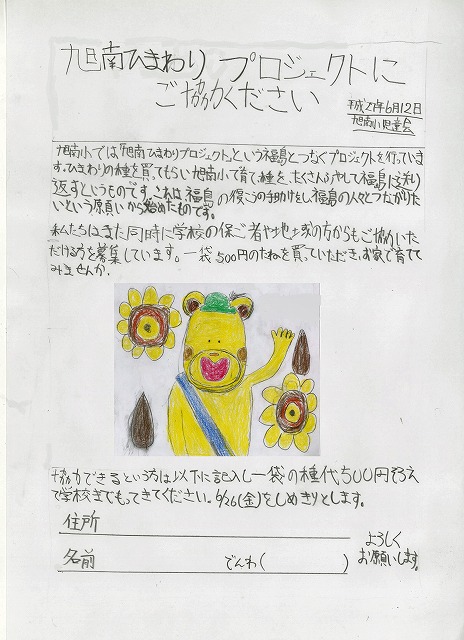 旭南ひまわりプロジェクトに
ご協力ください
平成27年6月12日
旭南小児童会
旭南小では「旭南ひまわりプロジェクト」という福島とつなぐプロジェクトを行っていま
す。ひまわりの種を買ってもらい旭南小で育て、種を、たくさんふやして福島に送り
返すというものです。これは福島の復こうの手助けをし福島の人とつながりた
いという願いから始めたものです。
私たちはまた同時に学校の保ご者や地域の方からもご協力いた
だける方を募集しています。一袋500円のたねを買っていただき、お家で育てて
みませんか。
協力できるという方は以下に記入し一袋の種代500円そえ
て学校までもってきてください。6/26(金)をしめきりとします。
住所
名前 でんわ( )
よろしく
お願いします。